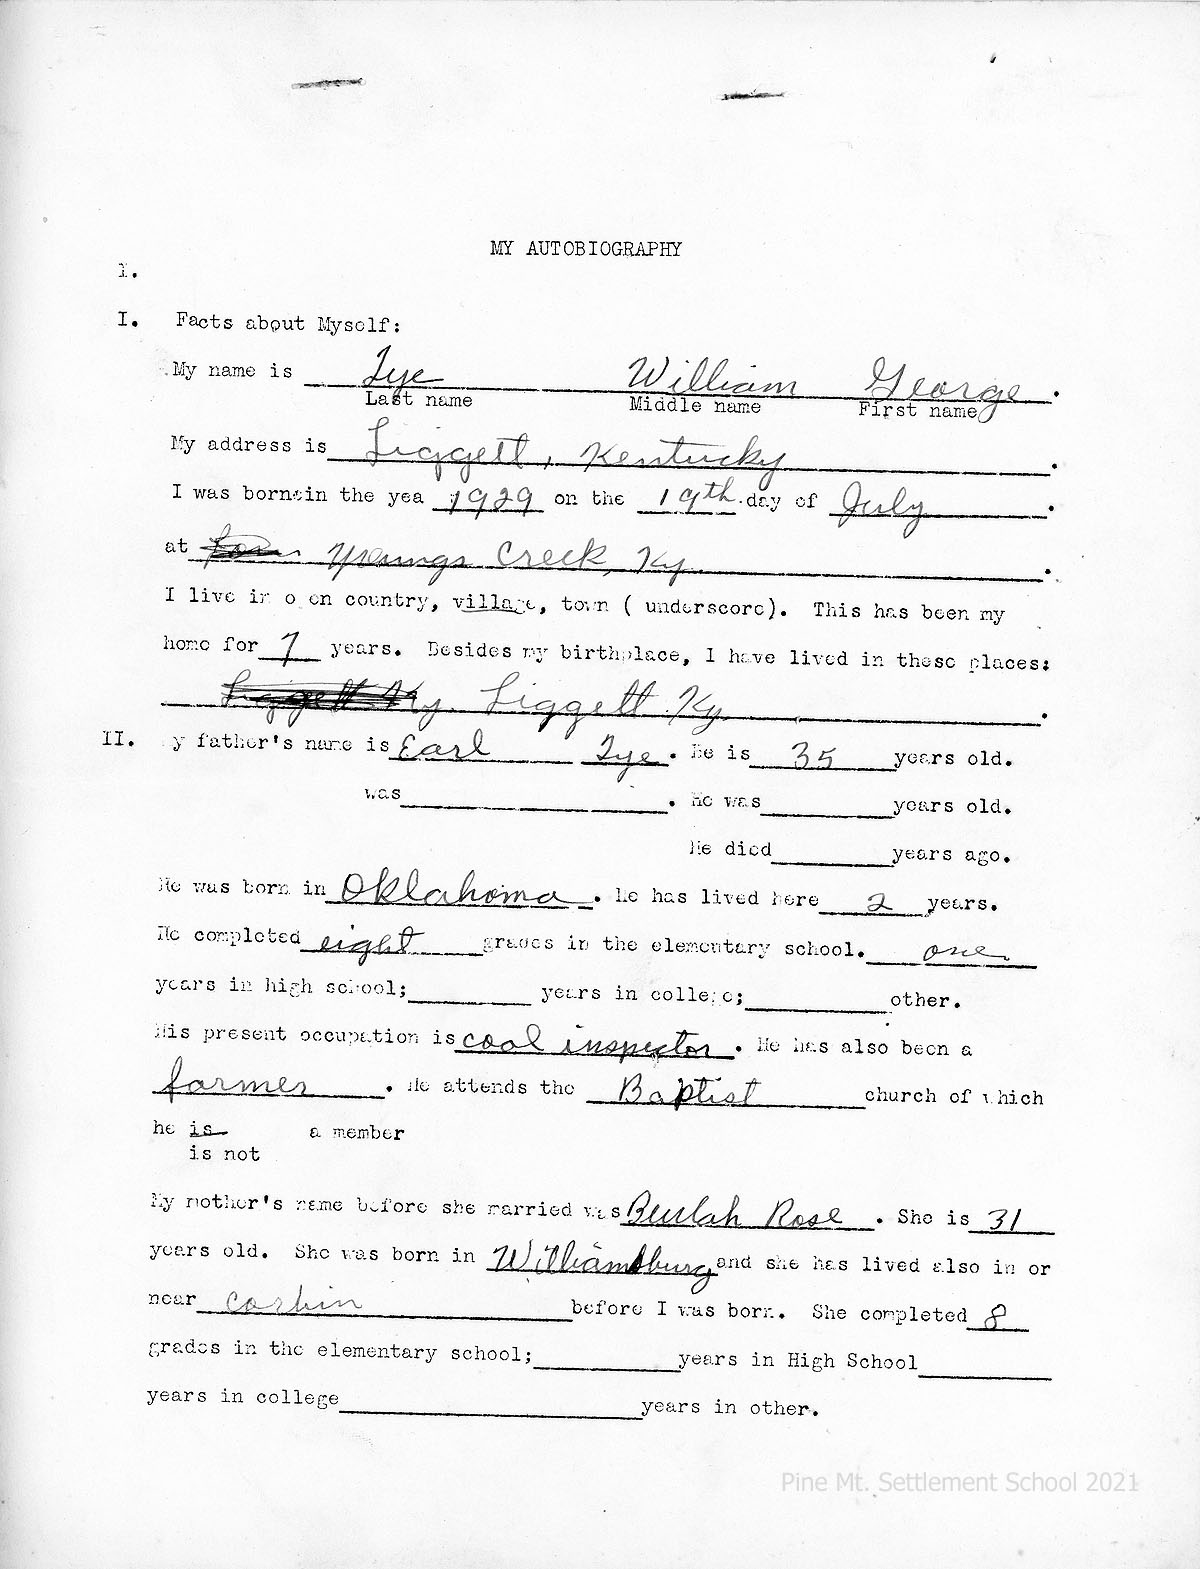 MY AUTOBIOGRAPHY
I.
I. Facts about Myself:
My name is Tye William George.
Last name Middle name First name
My address is Liggett, Kentucky.
I was born in the yea 1929 on the 19th day of July.
at Youngs Creek, Ky.
I live in o en country, village, town ( underscore). This has been my
home for 7 years. Besides my birthplace, I have lived in these places:
Liggett Ky. Liggett Ky.
II. y father's name is Earl Tye. He is 35 years old.
was . He was years old.
He died years ago.
He was born in Oklahoma. he has lived here 2 years.
He completed eight grades in the elementary school. one
years in high school; years in college; other.
His present occupation is coal inspector. He has also been a
farmer. He attends the Baptist church of which
he is a member
is not
My mother's name before she married was Beulah Rose. She is 31
years old. She was born in Williamsburg and she has lived also in or
near Corbin before I was born. She completed 8
grades in the elementary school; years in High School
years in college years in other.
Pine Mt. Settlement School 2021